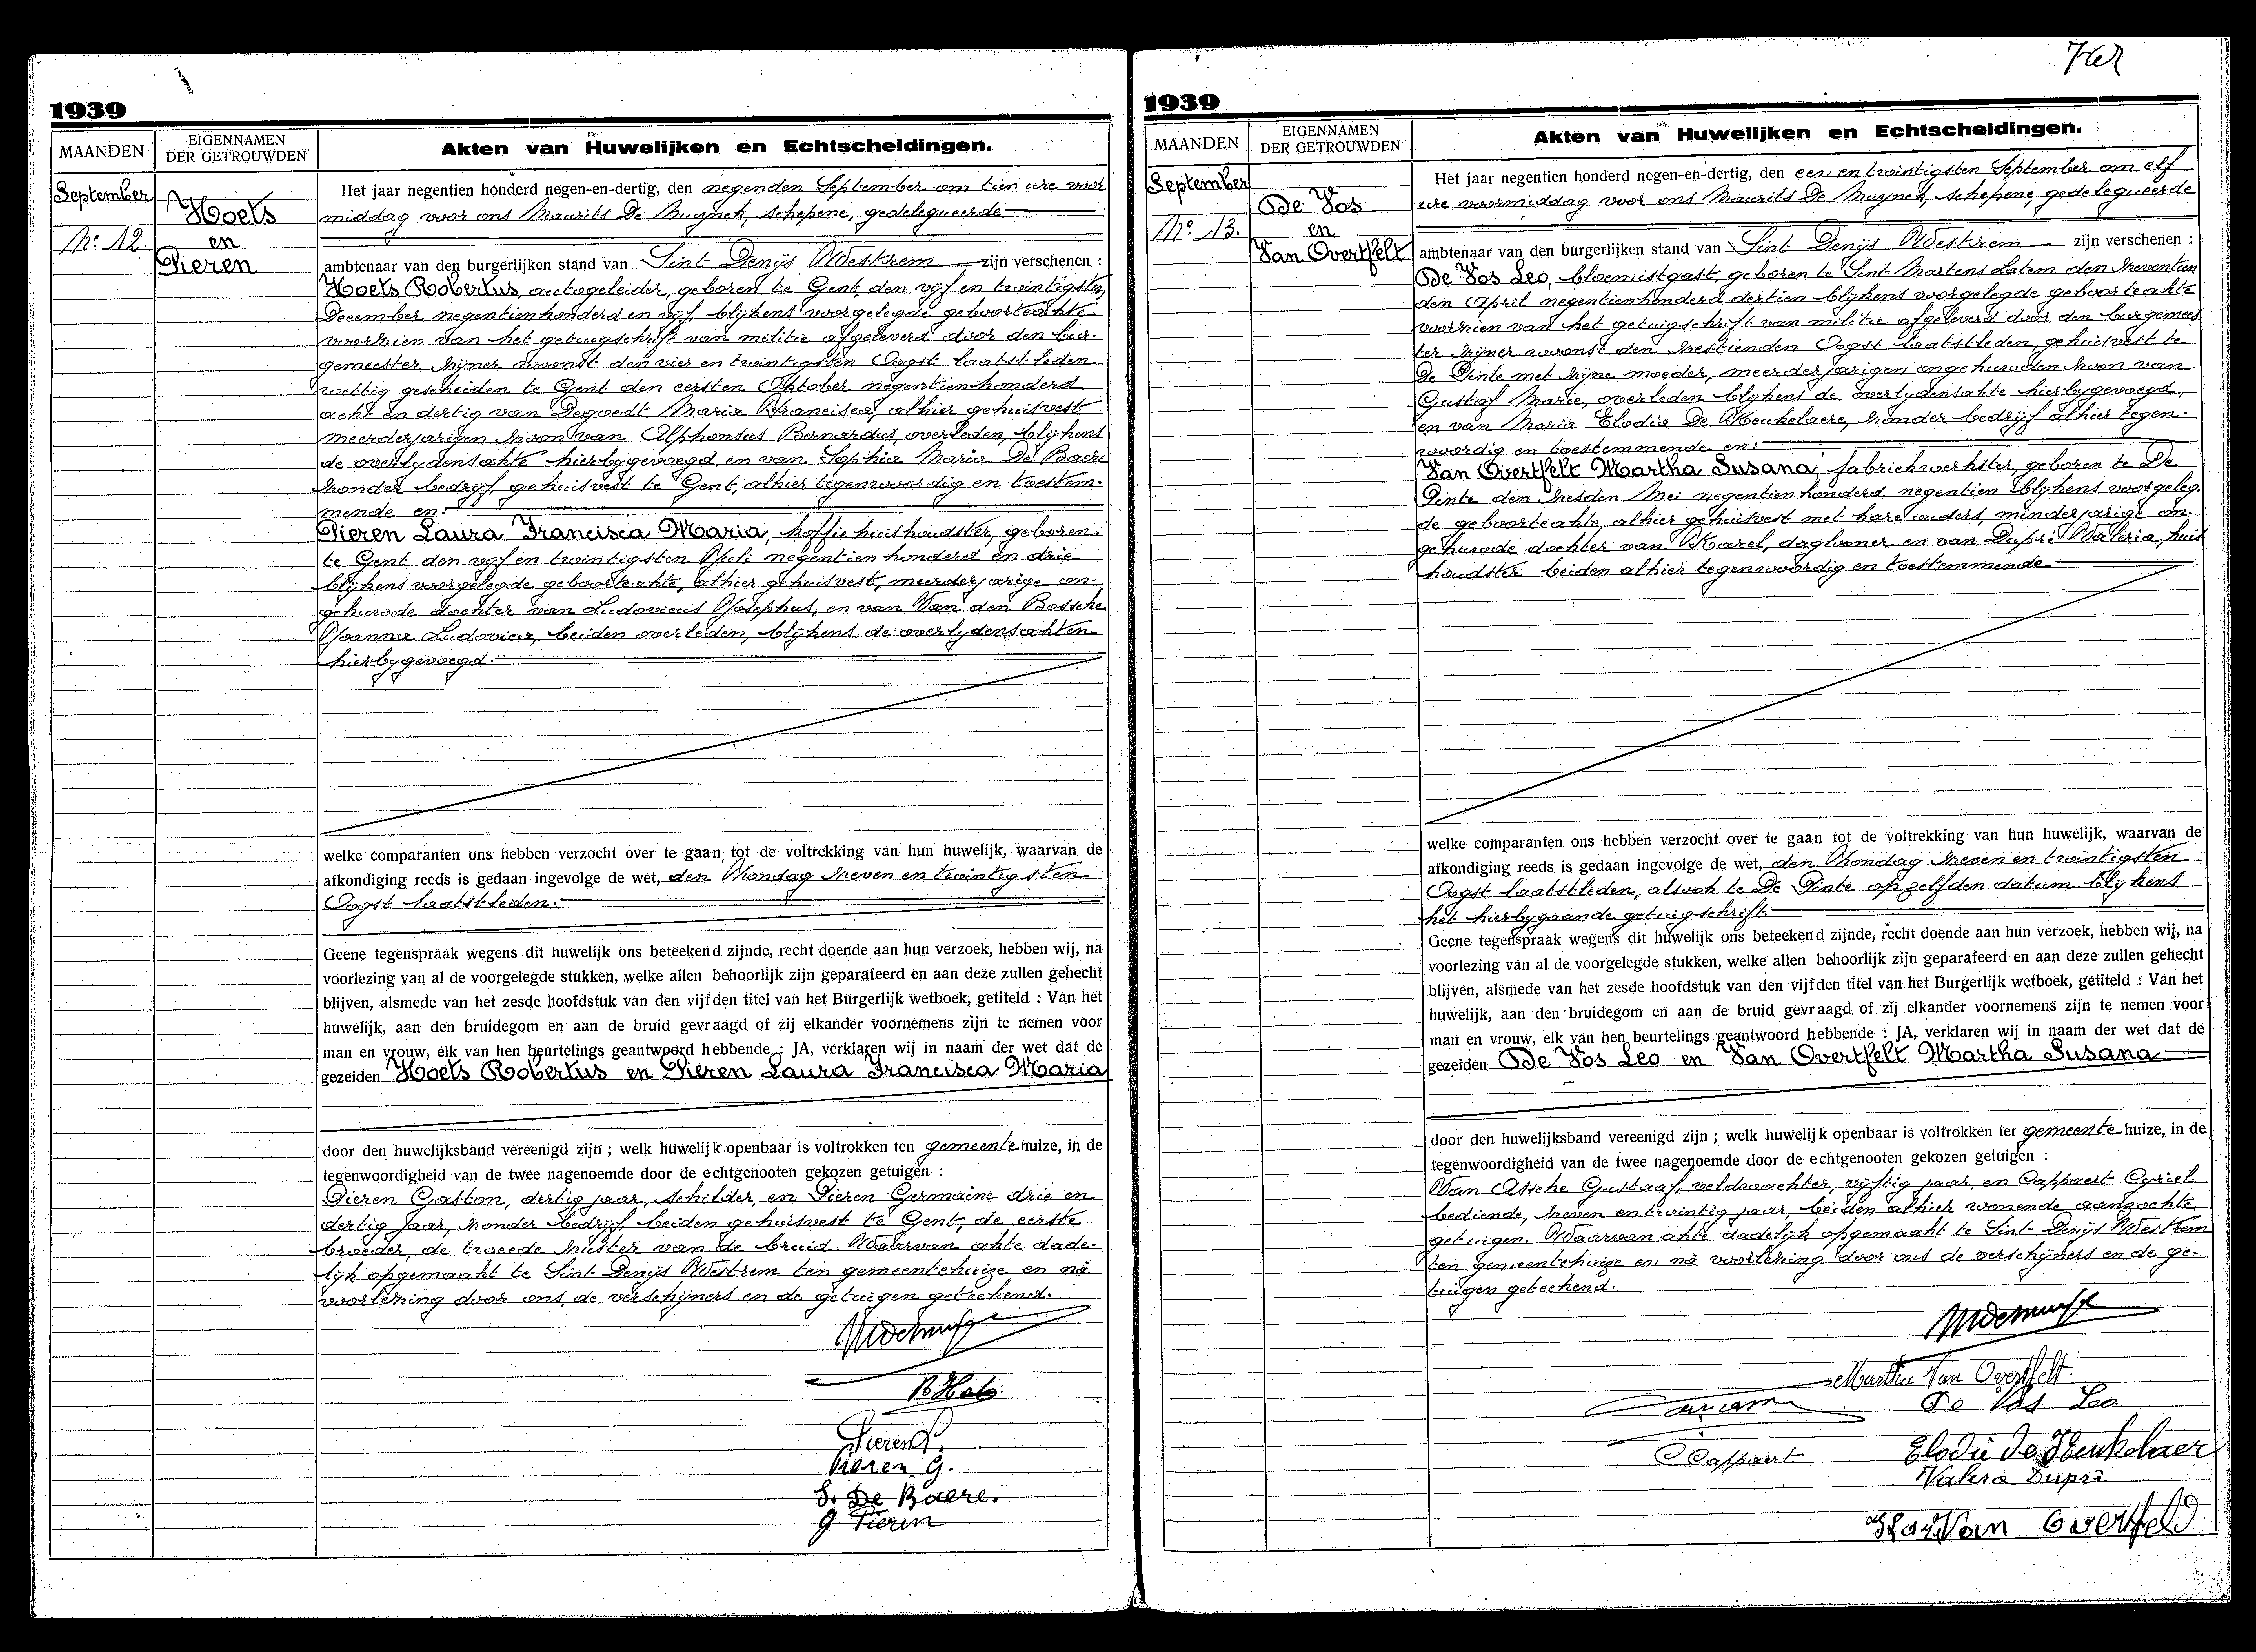 1939
MAANDEN
EIGENNAMEN
DER GETROUWDEN
Akten van Huwelijken en Echtscheidingen.
September
No 12.
Hoets
en
Pieren
Het jaar negentien honderd negen-en-dertig, den negenden September om tien ure voor
middag voor ons Maurits De Muynck, schepene, gedelegueerde
ambtenaar van den burgerlijken stand van Sint Denijs Westrem zijn verschenen :
Hoets Robertus, autogeleider, geboren te Gent, den vijf en twintigsten
December negentienhonderd en vijf, blijkens voorgelegde geboorteakte
voorzien van het getuigschrift van militie afgeleverd door den bur-
gemeester zijner woonst den vier en twintigsten Oogst laatstleden
wettig gescheiden te Gent den eersten Oktober negentienhonderd
acht en dertig van Degoedt Maria Francisca, alhier gehuisvest
meerderjarigen zoon van Alphonsus Bernardus, overleden, blijkens
de overlydensakte hierbygevoegd, en van Sophia Maria De Baere
zonder bedrijf, gehuisvest te Gent, alhier tegenwoordig en toestem-
mende en:
Pieren Laura Francisca Maria, koffiehuishoudster, geboren
te Gent den vijf en twintigsten Juli negentienhonderd en drie
blijkens voorgelegde geboorteakte, alhier gehuisvest, meerderjarige on-
gehuwde dochter van Ludovicus Josephus, en van Van den Bossche
Joanna Ludovica, beiden overleden, blijkens de overlydensakten
hierbygevoegd.
welke comparanten ons hebben verzocht over te gaan tot de voltrekking van hun huwelijk, waarvan de
afkondiging reeds is gedaan ingevolge de wet, den Zondag zeven en twintigsten
Oogst laatstleden.
Geene tegenspraak wegens dit huwelijk ons beteekend zijnde, recht doende aan hun verzoek, hebben wij, na
voorlezing van al de voorgelegde stukken, welke allen behoorlijk zijn geparafeerd en aan deze zullen gehecht
blijven, alsmede van het zesde hoofdstuk van den vijfden titel van het Burgerlijk wetboek, getiteld : Van het
huwelijk, aan den bruidegom en aan de bruid gevraagd of zij elkander voornemens zijn te nemen voor
man en vrouw, elk van hen beurtelings geantwoord hebbende : JA, verklaren wij in naam der wet dat de
gezeiden Hoets Robertus en Pieren Laura Francisca Maria
door den huwelijksband vereenigd zijn ; welk huwelijk openbaar is voltrokken ten gemeentehuize, in de
tegenwoordigheid van de twee nagenoemde door de echtgenooten gekozen getuigen :
Pieren Gaston, dertig jaar, schilder, en Pieren Germaine drie en
dertig jaar, zonder bedrijf, beiden gehuisvest te Gent, de eerste
broeder, de tweede zuster van de bruid. Waarvan akte dade-
lijk opgemaakt te Sint Denijs Westrem ten gemeentehuize en nà
voorlezing door ons, de verschijners en de getuigen geteekend.
R Hots
Pieren L.
Pieren G.
S. De Baere.
G Pieren
1939
MAANDEN
EIGENNAMEN
DER GETROUWDEN
Akten van Huwelijken en Echtscheidingen.
September
No 13.
De Vos
en
Van Overtfelt
Het jaar negentien honderd negen-en-dertig, den een en twintigsten September om elf
ure voormiddag voor ons Maurits De Muynck, schepene, gedelegueerde
ambtenaar van den burgerlijken stand van Sint Denijs Westrem zijn verschenen :
De Vos Leo, bloemistgast, geboren te Sint Martens Latem den zeventien
den April negentienhonderd dertien blijkens voorgelegde geboorteakte
voorzien van het getuigschrift van militie afgeleverd door den burgemees
ter zijner woonst den zestienden Oogst laatstleden, gehuisvest te
De Pinte met zijne moeder, meerderjarigen ongehuwden zoon van
Gustaf Marie, overleden blijkens de overlydensakte hierbygevoegd,
en van Maria Elodia De Keukelaere, zonder bedrijf alhier tegen-
woordig en toestemmende en:
Van Overtfelt Martha Susana, fabriekwerkster, geboren te De
Pinte den zesden Mei negentienhonderd negentien blijkens voorgeleg
de geboorteakte, alhier gehuisvest met hare ouders, minderjarige on-
gehuwde dochter van Karel, daglooner en van Dupré Valeria, huis
houdster beiden alhier tegenwoordig en toestemmende
welke comparanten ons hebben verzocht over te gaan tot de voltrekking van hun huwelijk, waarvan de
afkondiging reeds is gedaan ingevolge de wet, den Zondag zeven en twintigsten
Oogst laatstleden, alsook te De Pinte op zelfden datum blijkens
het hierbygaande getuigschrift.
Geene tegenspraak wegens dit huwelijk ons beteekend zijnde, recht doende aan hun verzoek, hebben wij, na
voorlezing van al de voorgelegde stukken, welke allen behoorlijk zijn geparafeerd en aan deze zullen gehecht
blijven, alsmede van het zesde hoofdstuk van den vijfden titel van het Burgerlijk wetboek, getiteld : Van het
huwelijk, aan den bruidegom en aan de bruid gevraagd of zij elkander voornemens zijn te nemen voor
man en vrouw, elk van hen beurtelings geantwoord hebbende : JA, verklaren wij in naam der wet dat de
gezeiden De Vos Leo en Van Overtfelt Martha Susana
door den huwelijksband vereenigd zijn ; welk huwelijk openbaar is voltrokken ter gemeentehuize, in de
tegenwoordigheid van de twee nagenoemde door de echtgenooten gekozen getuigen :
Van Assche Gustaaf, veldwachter, vijftig jaar, en Cappaert Cyriel
bediende, zeven en twintig jaar, beiden alhier wonende aanzochte
getuigen. Waarvan akte dadelijk opgemaakt te Sint Denijs Westrem
ten gemeentehuize en nà voorlezing door ons de verschijners en de ge-
tuigen geteekend.
Martha Van Overtfelt
De Vos Leo
Cappaert
Elodie De Keukelaer
Valeria Dupré
Van Overtfeld